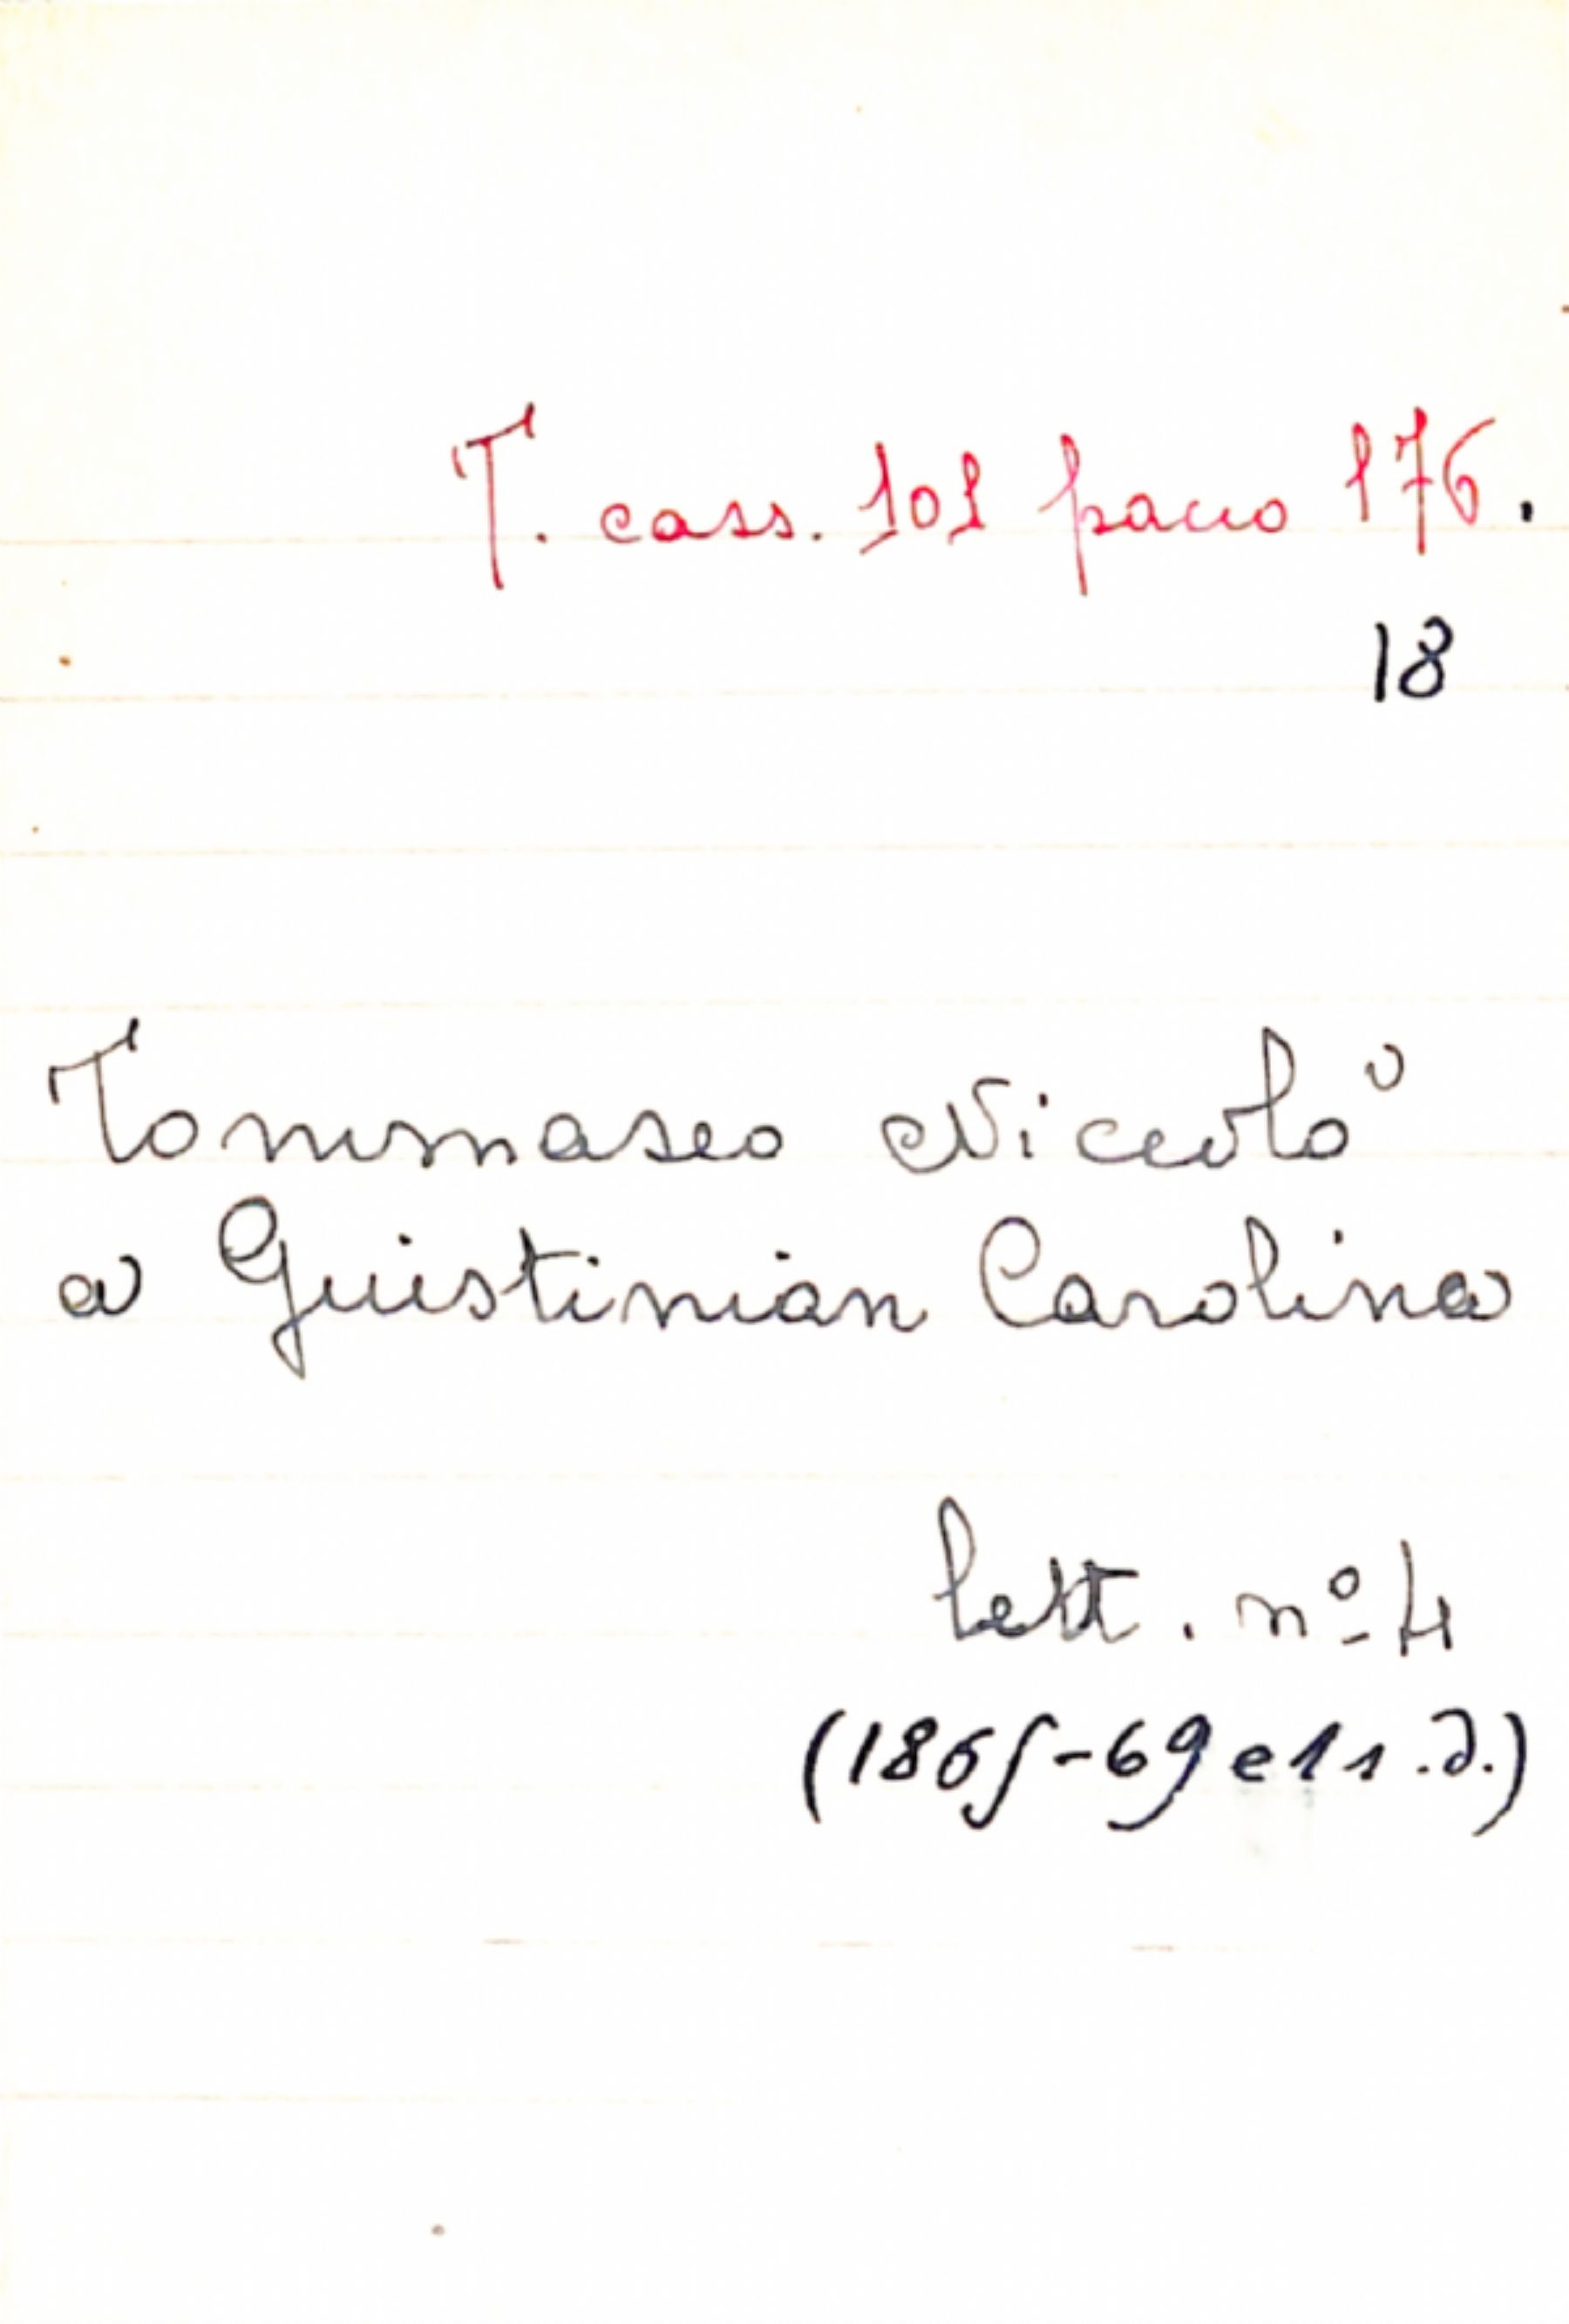 T. cass. 101 pacco 176.
18
Tommaseo Niccolò
a Giustinian Carolina
lett. nº 4
(1865-69 e 1 s.d.)